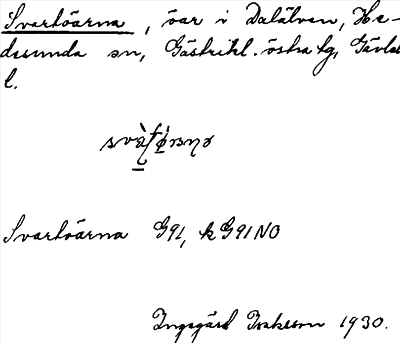 Svartöarna, öar i Dalälven, He-
desunda sn, Gästrikl. östra tg, Gävleb.
l.
Svartöarna G91, k G91NO
Ingegärd 1930.